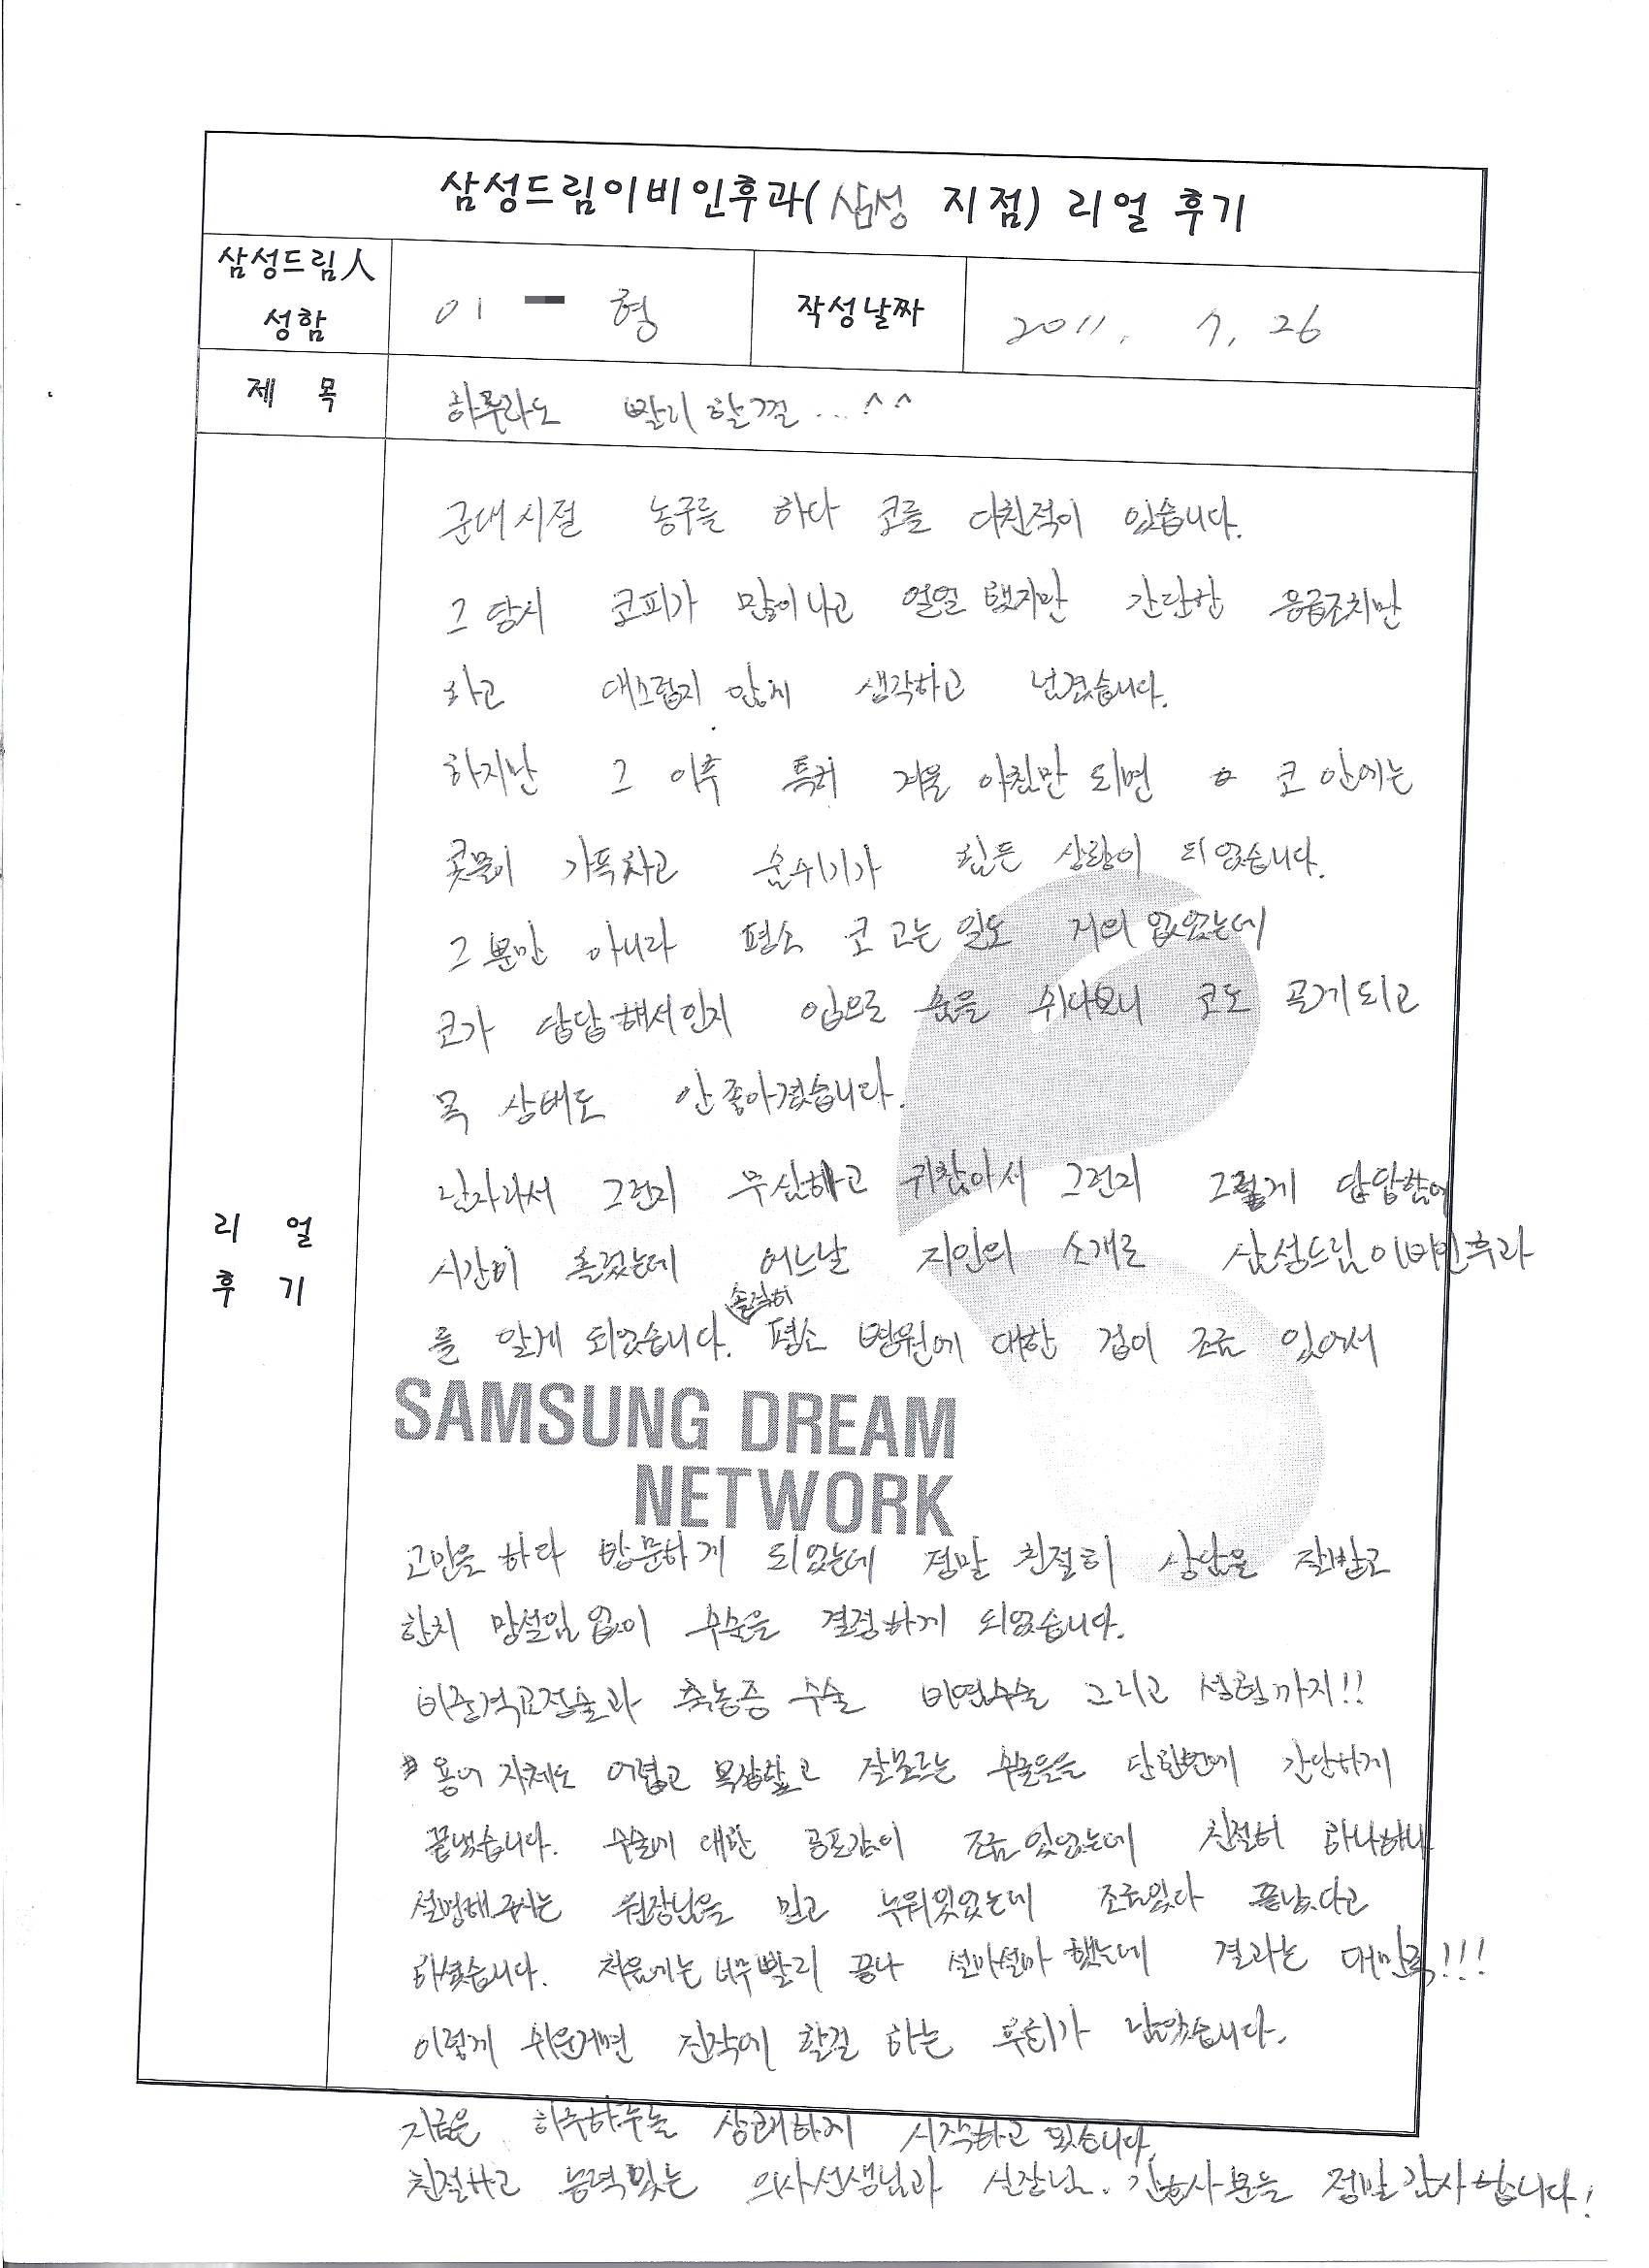 삼성드림이비인후과(삼성 지점) 리얼 후기
삼성드림人
성함
이 형
작성날짜
2011. 7. 26
제 목
하루라도 빨리 할껄...^^
군대시절 농구를 하다 코를 다친적이 있습니다.
그 당시 코피가 많이나고 얼얼 했지만 간단한 응급조치만
하고 대스럽지 않게 생각하고 넘겼습니다.
하지만 그 이후 특히 겨울 아침만 되면 코 안에는
콧물이 가득차고 숨쉬기가 힘든 상황이 되었습니다.
그 뿐만 아니라 평소 코 고는 일도 거의 없었는데
코가 답답해서인지 입으로 숨을 쉬다보니 코도 골게되고
목 상태도 안좋아졌습니다.
남자라서 그런지 무심하고 귀찮아서 그런지 그렇게 답답함에
시간이 흘렀는데 어느날 지인의 소개로 삼성드림이비인후과
를 알게 되었습니다. 솔직히 평소 병원에 대한 겁이 조금 있어서
SAMSUNG DREAM
NETWORK
고민을 하다 방문하게 되었는데 정말 친절히 상담을 잘받고
한치 망설임 없이 수술을 결정하게 되었습니다.
비중격교정술과 축농증 수술 비염수술 그리고 성형까지!!
용어 자체도 어렵고 복잡하고 잘모르는 수술을 단한번에 간단하게
끝냈습니다. 수술에 대한 공포감이 조금있었는데 친절히 하나하나
설명해주시는 원장님을 믿고 누워있었는데 조금있다 끝났다고
하셨습니다. 처음에는 너무빨리 끝나 설마설마 했는데 결과는 대만족!!!
이렇게 쉬운거면 진작에 할걸 하는 후회가 남았습니다.
지금은 하루하루를 상쾌하게 시작하고 있습니다.
친절하고 능력있는 의사선생님과 실장님, 간호사분들 정말감사합니다!
리 얼
후 기